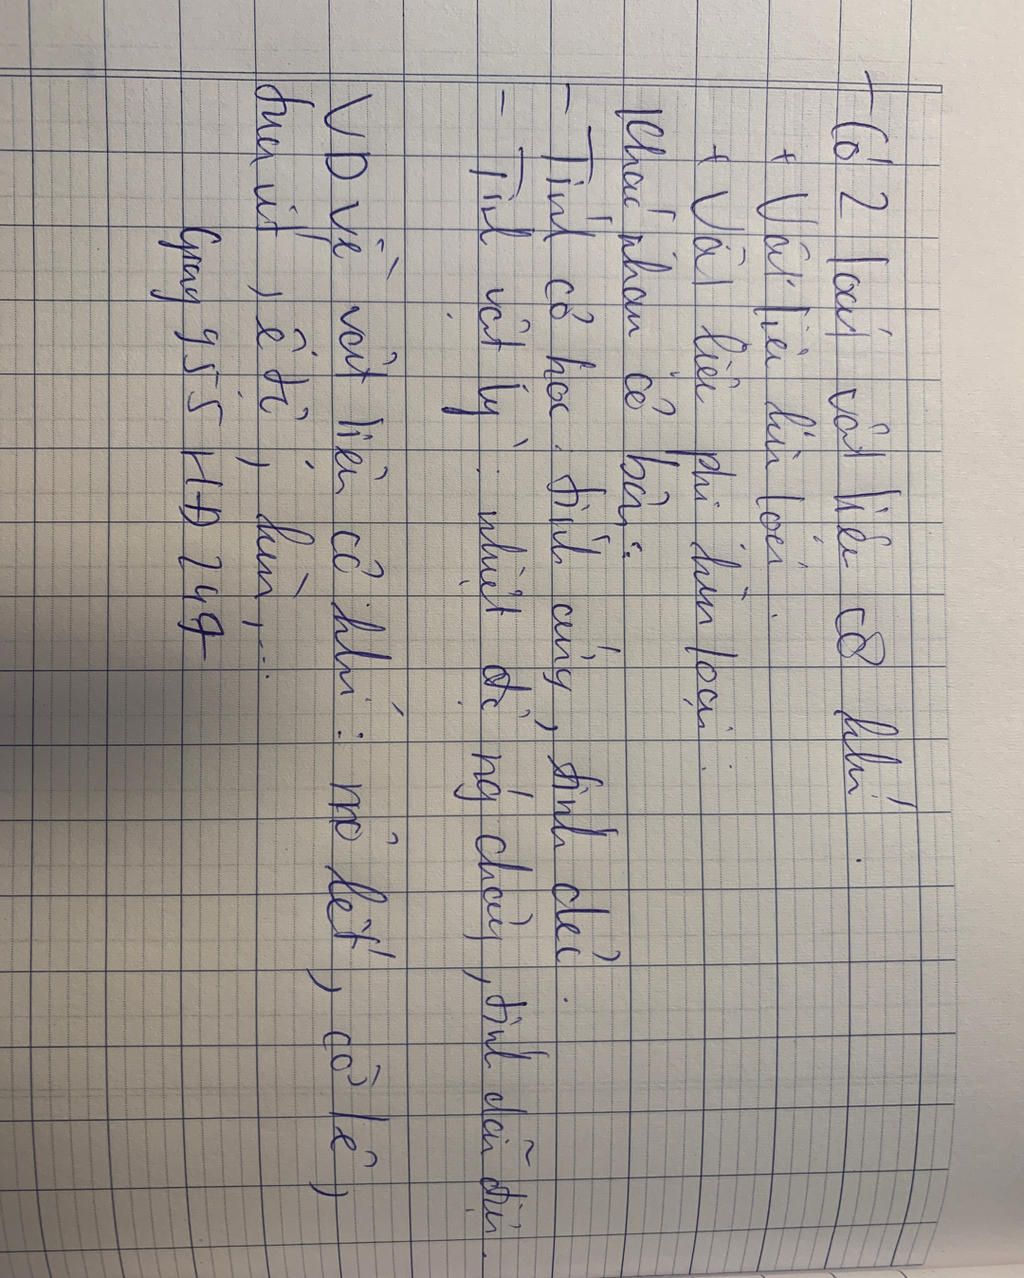 - Có 2 loại vật liệu cơ khí.
+ Vật liệu kim loại.
+ Vật liệu phi kim loại.
Khác nhau cơ bản:
- Tính cơ học: tính cứng, tính dẻo.
- Tính vật lý: nhiệt độ nóng chảy, tính dẫn điện.
VD về vật liệu cơ khí: mỏ lết, cờ lê,
tua vít, ê tô, kìm,...
955 HĐ 249